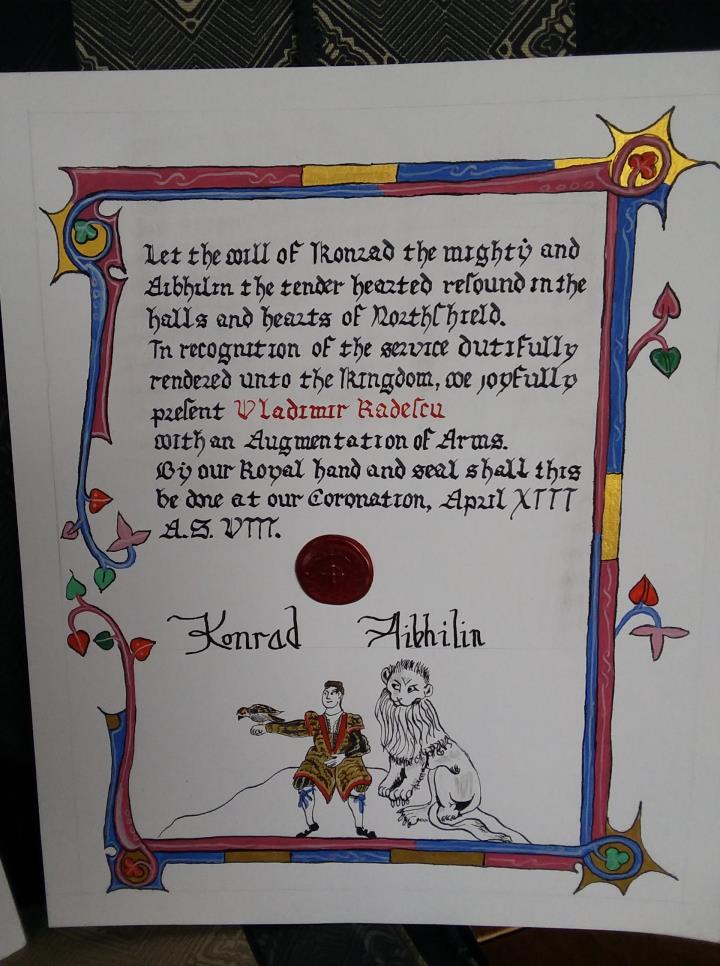 Let the will of Konrad the mighty and
Aibhilin the tender hearted reſound in the
halls and hearts of Northſhield.
In recognition of the service dutifully
rendered unto the Kingdom, we joyfully
preſent Vladimir Radeſcu
with an Augmentation of Arms.
By our Royal hand and seal shall this
be done at our Coronation, April XIII
A.S. VIII.
Konrad Aibhilin